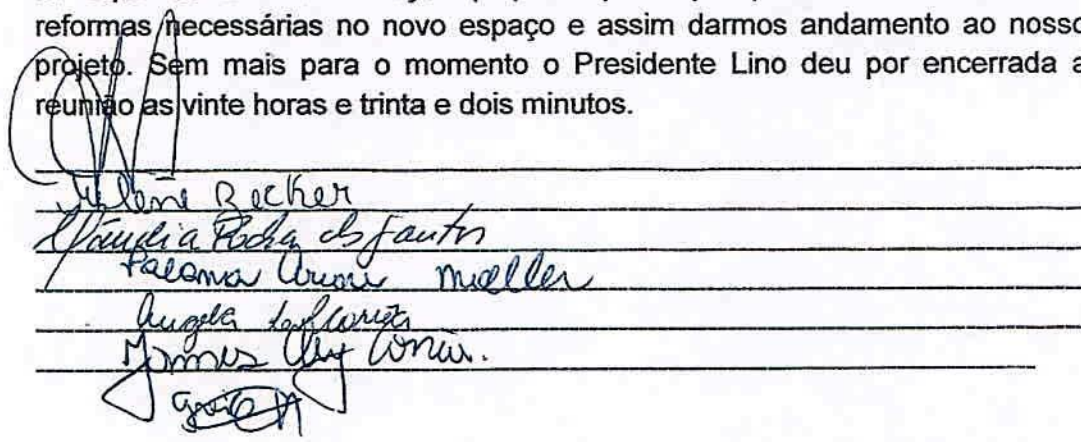 reformas necessárias no novo espaço e assim darmos andamento ao nosso
projeto. Sem mais para o momento o Presidente Lino deu por encerrada a
reunião as vinte horas e trinta e dois minutos.
Becker
Cláudia Rocha dos Santos
Paloma Mueller
Angela